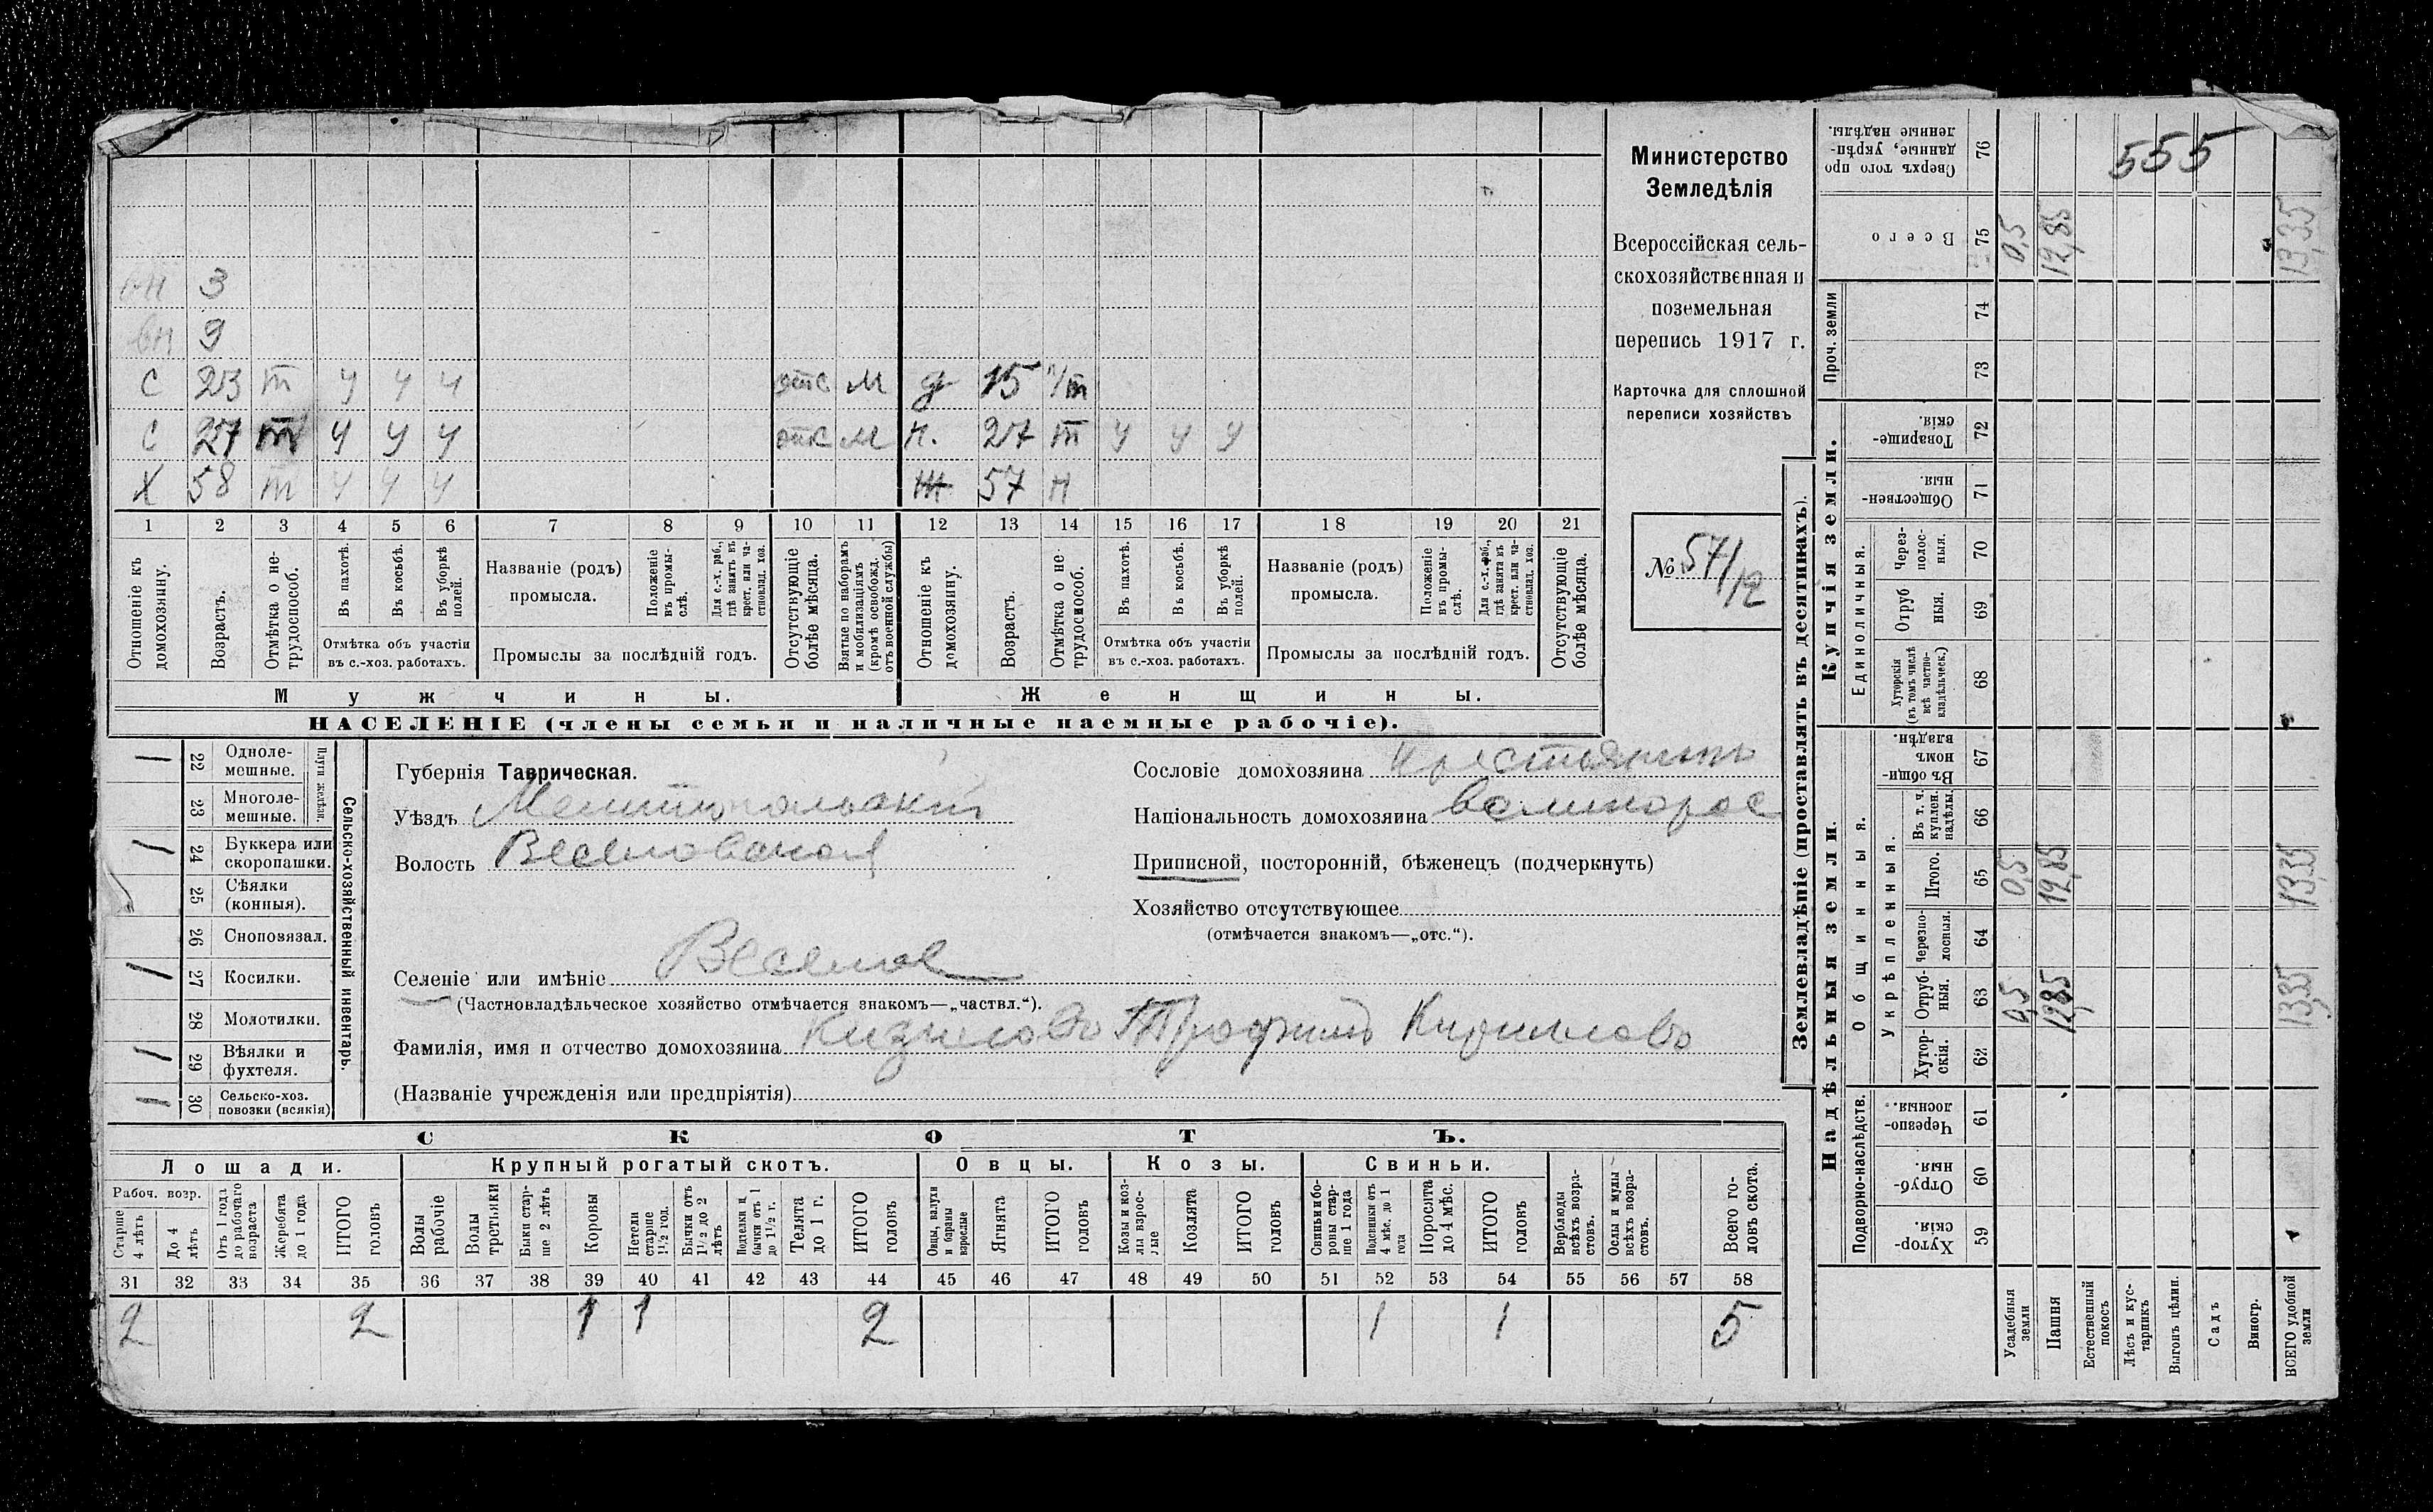 555
Министерство
Земледѣлія
Всероссійская сель-
скохозяйственная и
поземельная
перепись 1917 г.
Карточка для сплошной
переписи хозяйствъ
№ 57/12
вн 3
вн 9
С 23 т у у у отс м д 15 п/т
С 27 т у у у отс м н. 27 т у у у
Х 58 т у у у Ж 57 н
1 2 3 4 5 6 7 8 9 10 11 12 13 14 15 16 17 18 19 20 21
Отношеніе къ домохозяину.
Возрастъ.
Отмѣтка о не-трудоспособ.
Въ пахотѣ.
Въ косьбѣ.
Въ уборкѣ полей.
Отмѣтка объ участіи
въ с.-хоз. работахъ.
Названіе (родъ)
промысла.
Положеніе въ промы-слѣ.
Для с.-х. раб., гдѣ занятъ въ крест. или ча-стновлад. хоз.
Промыслы за послѣдній годъ.
Отсутствующіе болѣе мѣсяца.
Взятые по наборамъ и мобилизаціямъ (кромѣ освобожд. отъ военной службы)
Отношеніе къ домохозяину.
Возрастъ.
Отмѣтка о не трудоспособ.
Въ пахотѣ.
Въ косьбѣ.
Въ уборкѣ полей.
Отмѣтка объ участіи
въ с.-хоз. работахъ.
Названіе (родъ)
промысла.
Положеніе въ промы-слѣ.
Для с.-х. раб., гдѣ занята въ крест. или ча-стновлад. хоз.
Промыслы за послѣдній годъ.
Отсутствующіе болѣе мѣсяца.
Мужчины. Женщины.
НАСЕЛЕНІЕ (члены семьи и наличные наемные рабочіе).
Сельско-хозяйственный инвентарь.
Плуги желѣзн.
1 22 Одноле-мешные.
23 Многоле-мешные.
1 24 Буккера или скоропашки.
25 Сѣялки (конныя).
26 Сноповязал.
1 27 Косилки.
28 Молотилки.
1 29 Вѣялки и фухтеля.
1 30 Сельско-хоз. повозки (всякія)
Губернія Таврическая.
Уѣздъ Мелитопольскій
Волость Веселовская
Сословіе домохозяина крестьянинъ
Національность домохозяина великорос
Приписной, посторонній, бѣженецъ (подчеркнуть)
Хозяйство отсутствующее
(отмѣчается знакомъ—„отс.“).
Селеніе или имѣніе Веселое
(Частновладѣльческое хозяйство отмѣчается знакомъ—„частвл.“).
Фамилія, имя и отчество домохозяина Кизиловъ Трофимъ Кириловъ
(Названіе учрежденія или предпріятія)
СКОТЪ.
Лошади. Крупный рогатый скотъ. Овцы. Козы. Свиньи.
Рабоч. возр.
Старше 4 лѣтъ
До 4 лѣтъ
Отъ 1 года до рабочаго возраста
Жеребята до 1 года
ИТОГО головъ
Волы рабочіе
Волы третьяки
Быки стар-ше 2 лѣтъ
Коровы
Нетели старше 1½ год.
Бычки отъ 1½ до 2 лѣтъ
Подтелки и бычки отъ 1 до 1½ г.
Телята до 1 г.
ИТОГО головъ
Овцы, валухи и бараны взрослые
Ягнята
ИТОГО головъ
Козы и коз-лы взрос-лые
Козлята
ИТОГО головъ
Свиньи и бо-ровы стар-ше 1 года
Подсвинки отъ 4 мѣс. до 1 года
Поросята до 4 мѣс.
ИТОГО головъ
Верблюды всѣхъ возра-стовъ.
Ослы и мулы всѣхъ возра-стовъ.
Всего го-ловъ скота.
31 32 33 34 35 36 37 38 39 40 41 42 43 44 45 46 47 48 49 50 51 52 53 54 55 56 57 58
2 2 1 1 2 1 1 5
Землевладѣніе (проставлять въ десятинахъ).
Надѣльныя земли. Купчія земли. Проч. земли
Подворно-наслѣдств.
Общинныя.
Укрѣпленныя.
Единоличныя.
Сверхъ того про данные, укрѣп-ленные надѣлы. 76
Всего 75 0,5 12,85 13,35
74
73
Товарище-скія. 72
Обществен-ныя. 71
Через-полос-ныя. 70
Отруб ныя. 69
Хуторскія (въ томъ числѣ всѣ частно-владѣльческ.) 68
Въ общи-номъ владѣн. 67
Въ т. ч. куплен. надѣлы. 66
Итого. 65 0,5 12,85 13,35
Черезпо-лосныя. 64
Отруб-ныя. 63 0,5 12,85 13,35
Хутор-скія. 62
Черезпо-лосныя. 61
Отруб-ныя 60
Хутор-скія. 59
Усадебныя земли
Пашня
Естественный покосъ
Лѣсъ и кус-тарникъ
Выгонъ цѣлин.
Садъ
Виногр.
ВСЕГО удобной земли